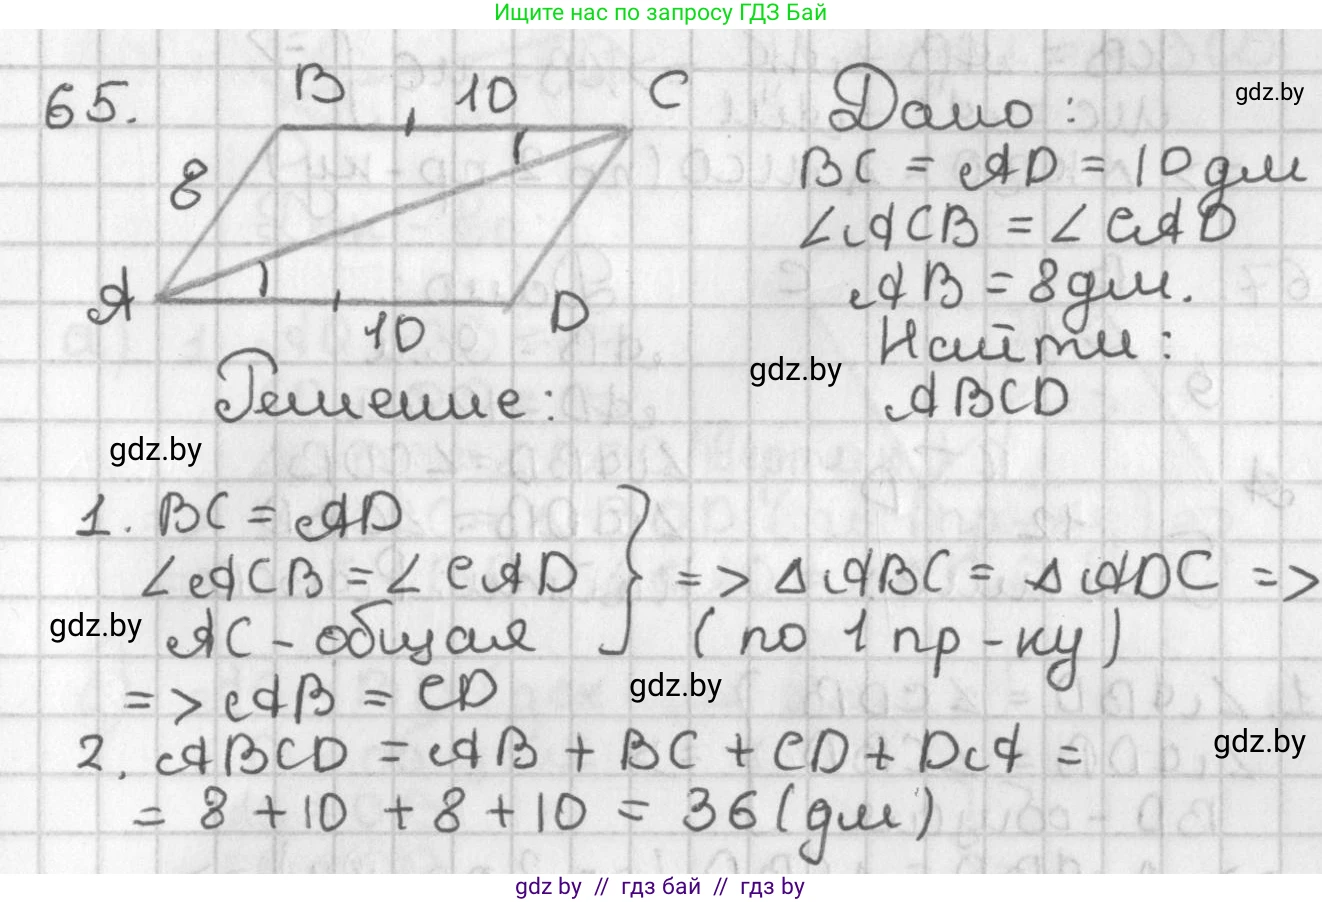 Ищите нас по запросу ГДЗ Бай
65.
B 10 C
8
A
10 D
Дано:
gdz.by
BC = AD = 10 дм
∠ACB = ∠CAD
AB = 8 дм.
Найти:
gdz.by
ABCD
Решение:
gdz.by
1. BC = AD
∠ACB = ∠CAD } => ΔABC = ΔADC =>
gdz.by
AC - общая (по 1 пр-ку)
=> AB = CD
gdz.by
2. ABCD = AB + BC + CD + DA =
gdz.by
= 8 + 10 + 8 + 10 = 36 (дм)
gdz.by // гдз бай // гдз by